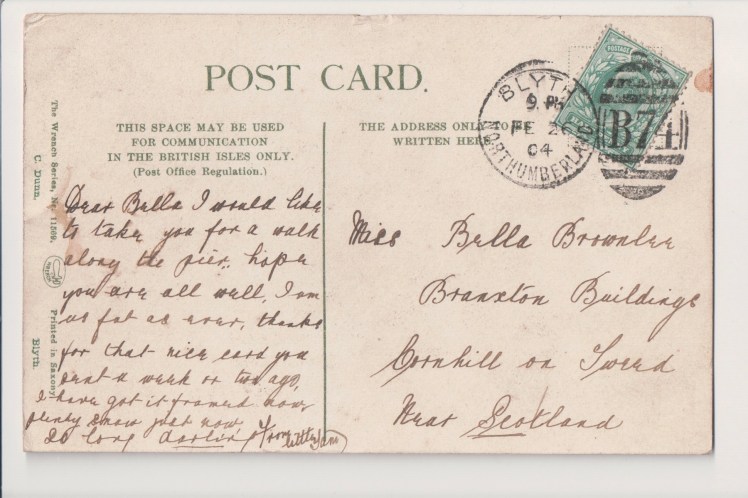 POST CARD.
THIS SPACE MAY BE USED
FOR COMMUNICATION
IN THE BRITISH ISLES ONLY.
(Post Office Regulation.)
THE ADDRESS ONLY TO BE
WRITTEN HERE.
POSTAGE
BLYTH
9. PM
FE 26
04
NORTHUMBERLAND
B74
The Wrench Series, No. 11569. Printed in Saxony
C. Dunn. Blyth.
Dear Bella I would like
to take you for a walk
along the pier. hope
you are all well. I am
as fat as ever, thanks
for that nice card you
sent a week or two ago,
I have got it framed now
plenty snow just now,
So long darlin from little
Miss Bella Brownlee
Branxton Buildings
Cornhill on Tweed
Near Scotland